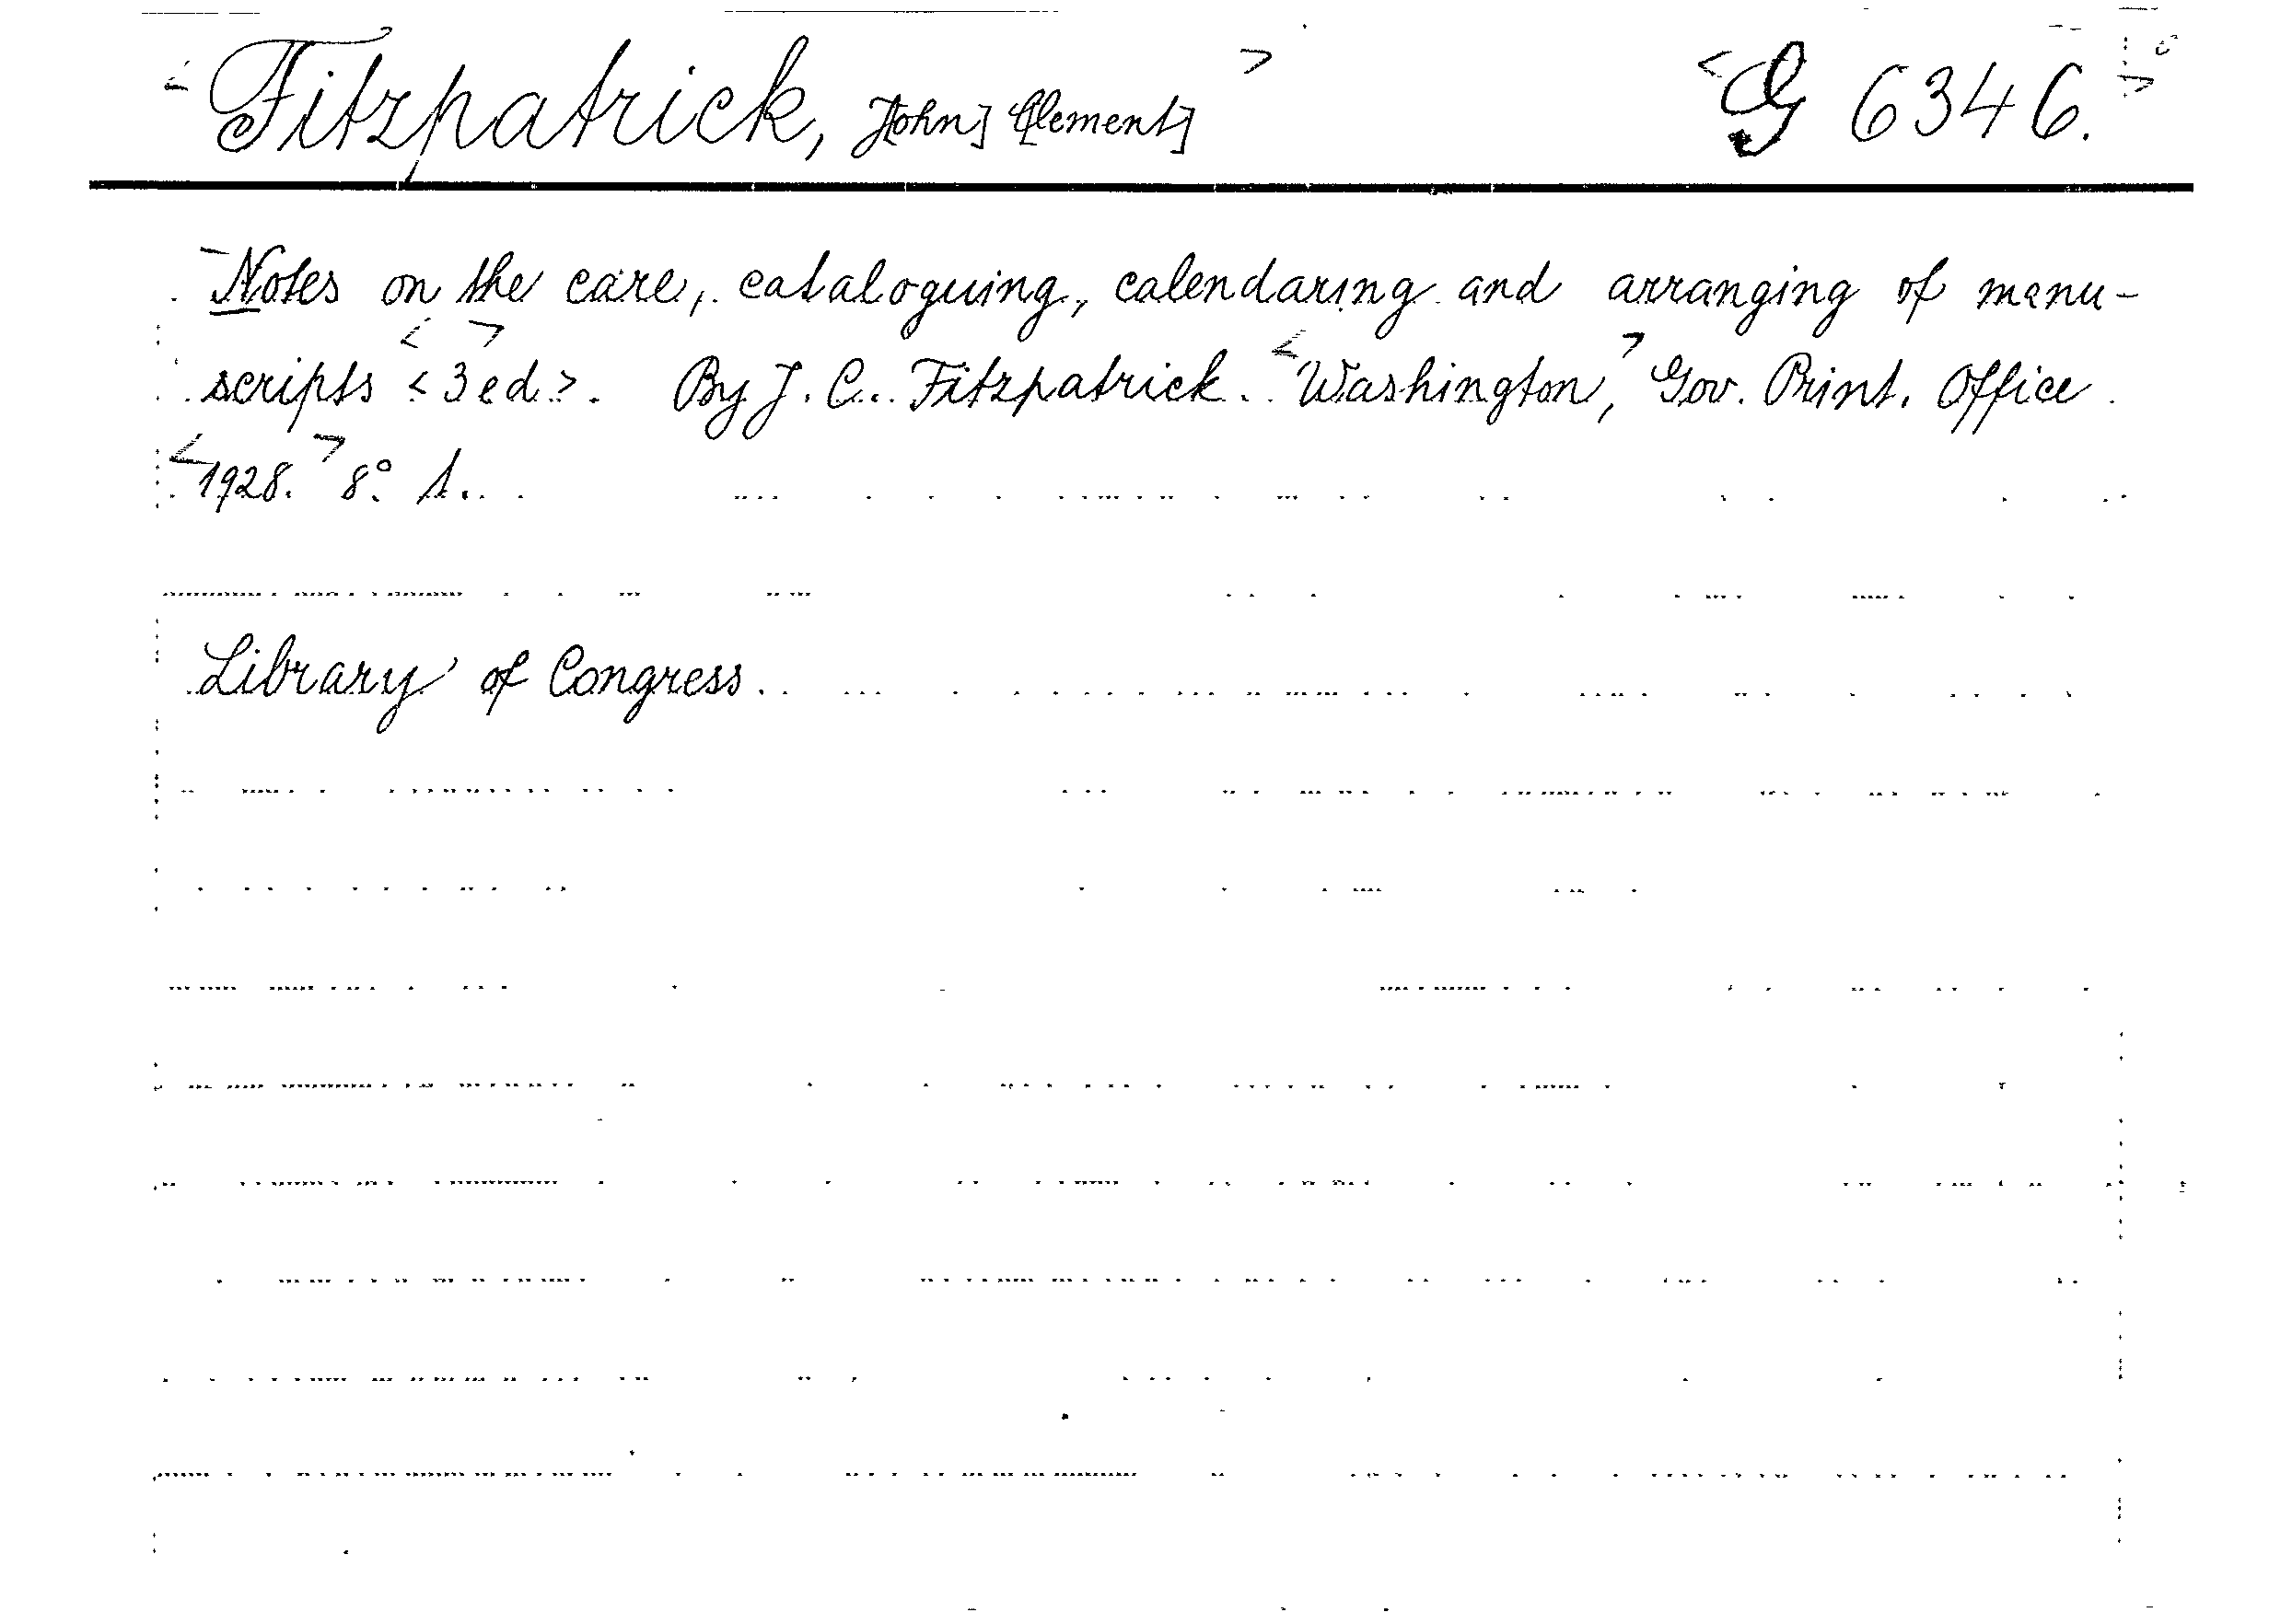 <Fitzpatrick, J[ohn] C[lement]> <G 6346.>
Notes on the care, cataloguing, calendaring and arranging of manu-
scripts <3 ed>. By J. C. Fitzpatrick. <Washington,> Gov. Print. Office
<1928.> 8°. 1.
Library of Congress.